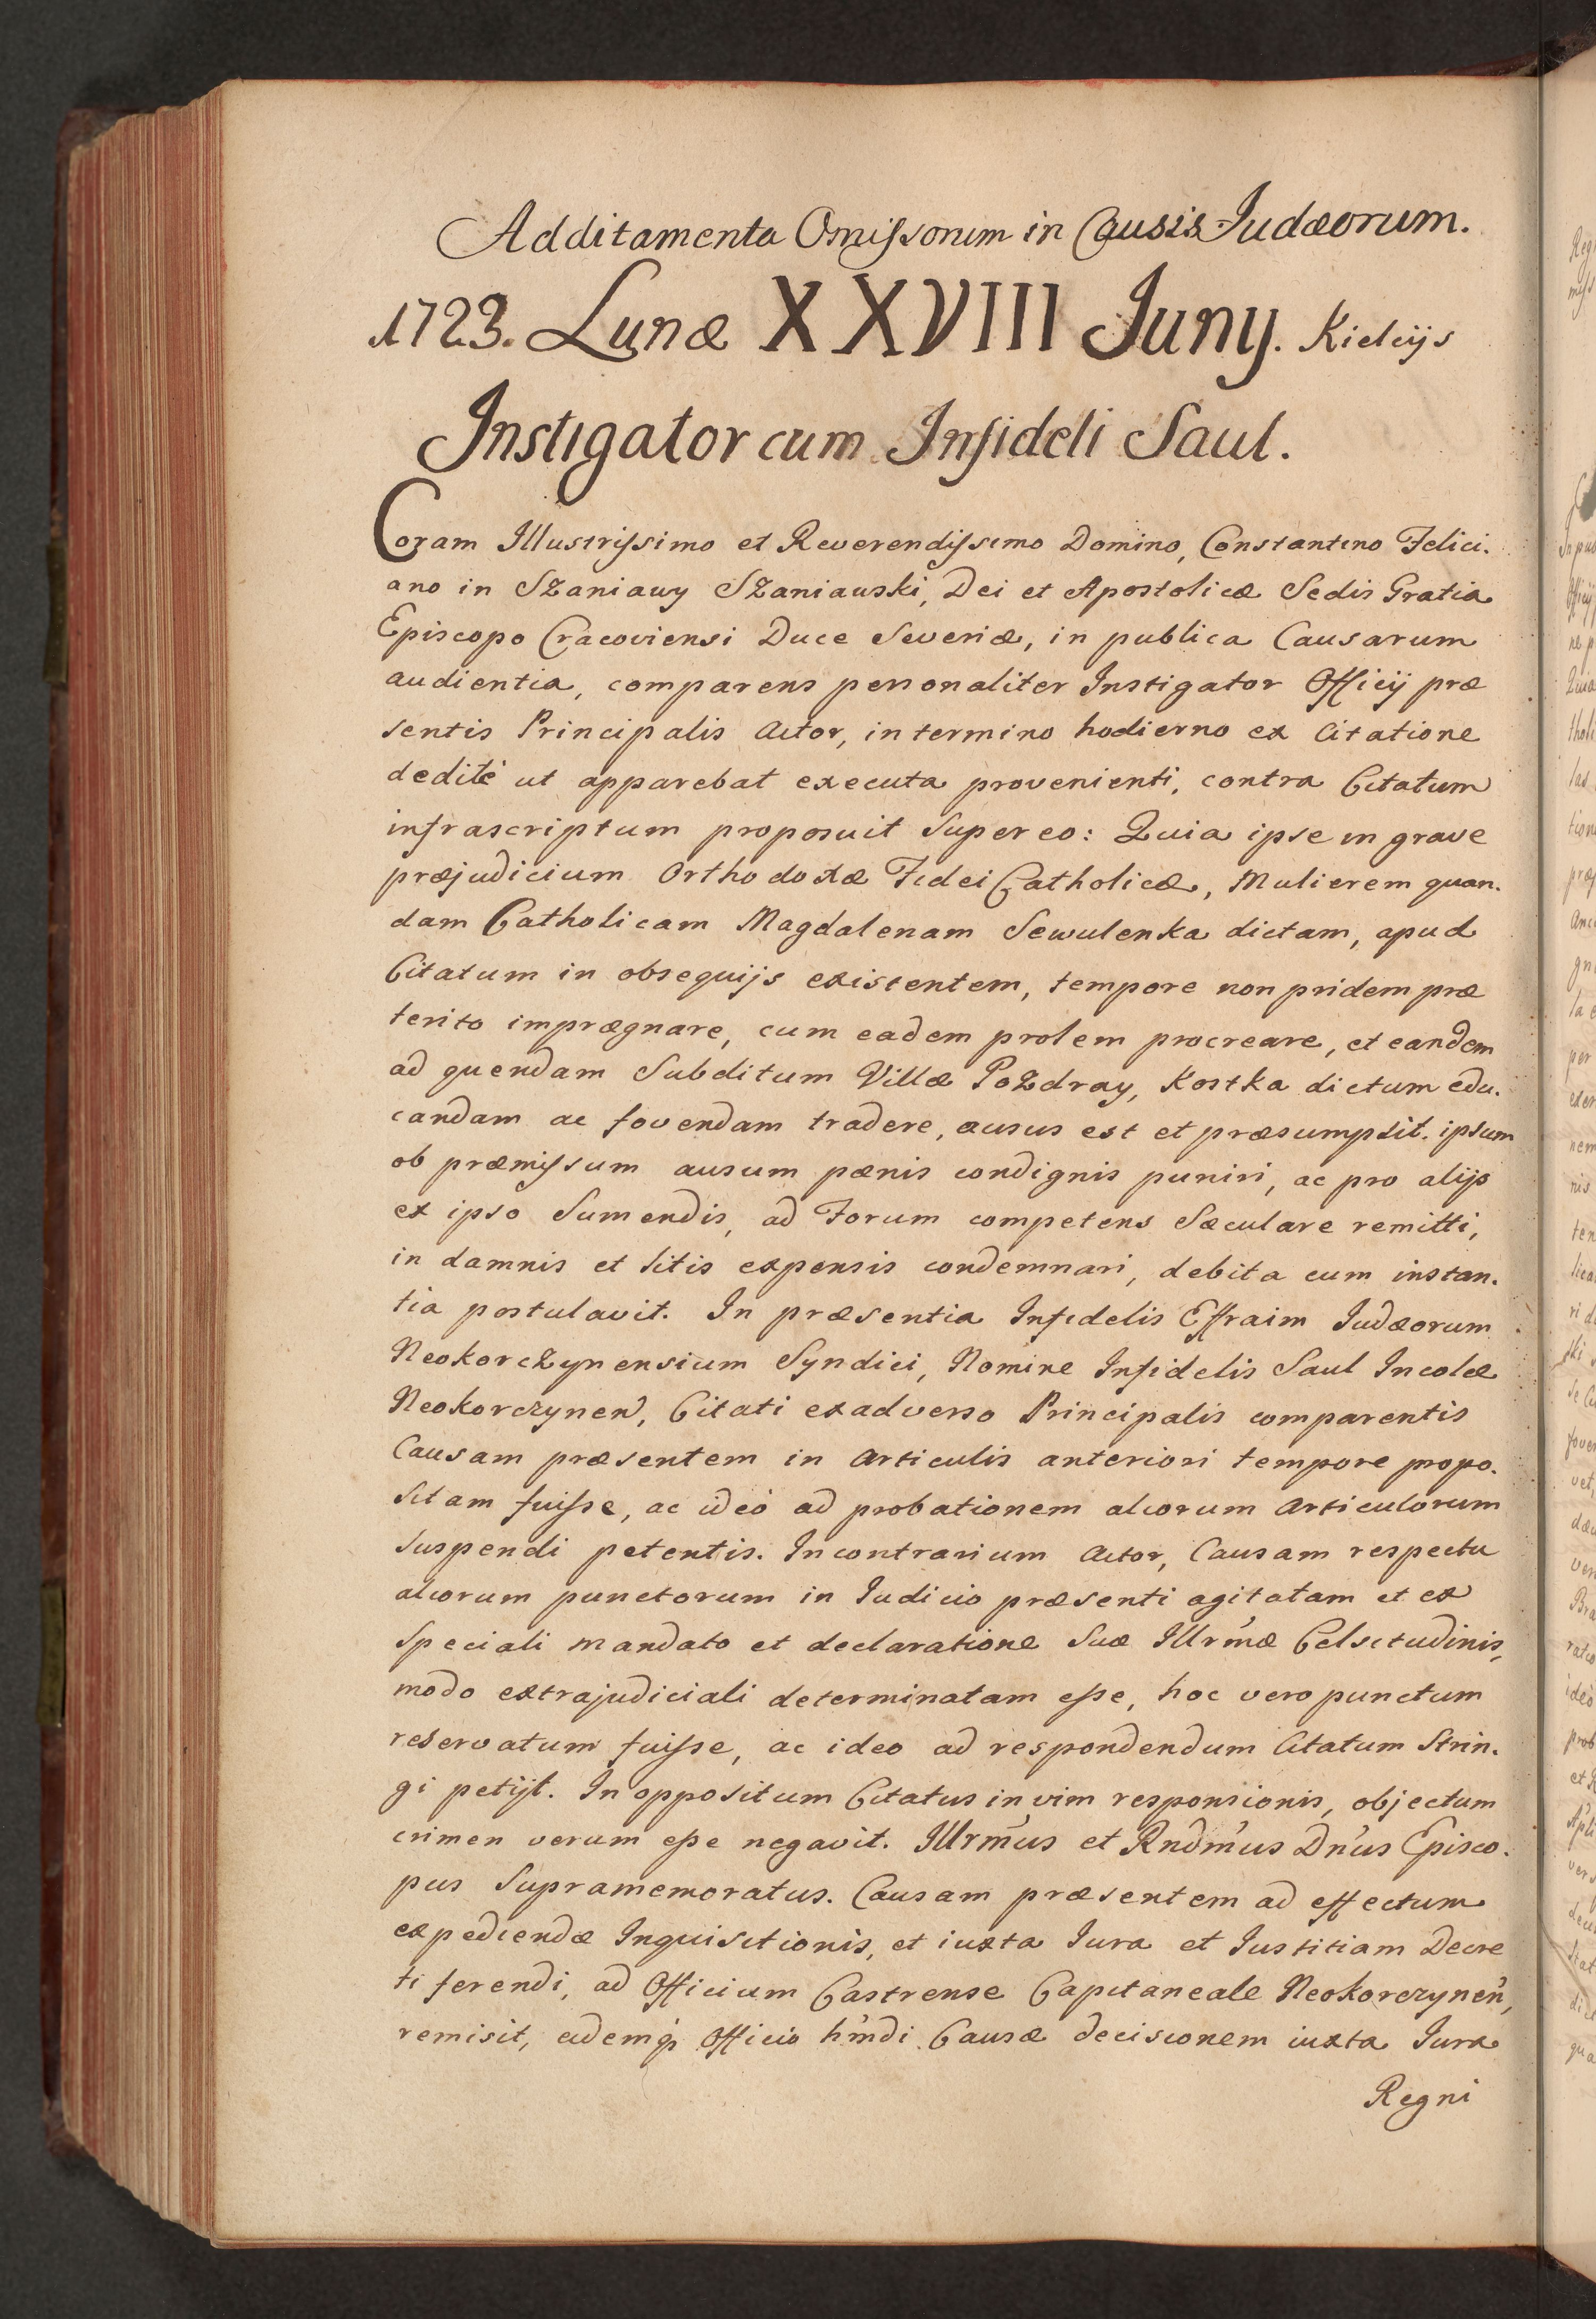 Additamenta Omissorum in Causis Judæorum.
1723. Lunæ XXVIII Juny. Kielcijs
Instigator cum Infideli Saul.
Coram Illustrissimo et Reverendissimo Domino, Constantino Felici.
ano in Szaniawy Szaniawski, Dei et Apostolicæ Sedis Gratia
Episcopo Cracoviensi Duce Severiæ, in publica Causarum
audientia, comparens personaliter Instigator Officij præ
sentis Principalis Actor, in termino hodierno ex Citatione
deditè ut apparebat executa provenienti, contra Citatum
infrascriptum proposuit super eo: Quia ipse in grave
præjudicium Orthodoxæ Fidei Catholicæ, Mulierem quan.
dam Catholicam Magdalenam Sewulenka dictam, apud
Citatum in obsequijs existentem, tempore non pridem præ
terito imprægnare, cum eadem prolem procreare, et eandem
ad quendam Subditum Villæ Pozdray, Kostka dictum edu.
candam ac fovendam tradere, ausus est et præsumpsit. ipsum
ob præmissum ausum pænis condignis puniri, ac pro alijs
ex ipso Sumendis, ad Forum competens Sæculare remitti,
in damnis et litis expensis condemnari, debita cum instan.
tia postulavit. In præsentia Infidelis Effraim Judæorum
Neokorczynensium Syndici, Nomine Infidelis Saul Incolæ
Neokorczynen, Citati ex adverso Principalis comparentis
Causam præsentem in Articulis anteriori tempore propo.
sitam fuisse, ac ideò ad probationem aliorum Articulorum
suspendi petentis. In contrarium Actor, Causam respectu
aliorum punctorum in Judicio præsenti agitatam et ex
speciali mandato et declaratione Suæ Illrmæ Celsitudinis,
modo extrajudiciali determinatam esse, hoc vero punctum
reservatum fuisse, ac ideo ad respondendum Citatum Strin.
gi petijt. In oppositum Citatus in vim responsionis, objectum
crimen verum esse negavit. Illrmus et Rndmus Dnus Episco.
pus Supramemoratus. Causam præsentem ad effectum
expediendæ Inquisitionis, et iuxta Jura et Justitiam Decre
ti ferendi, ad Officium Castrense Capitaneale Neokorczynen,
remisit, eidemq Officio hmdi Causæ decisionem iuxta Jura
Regni